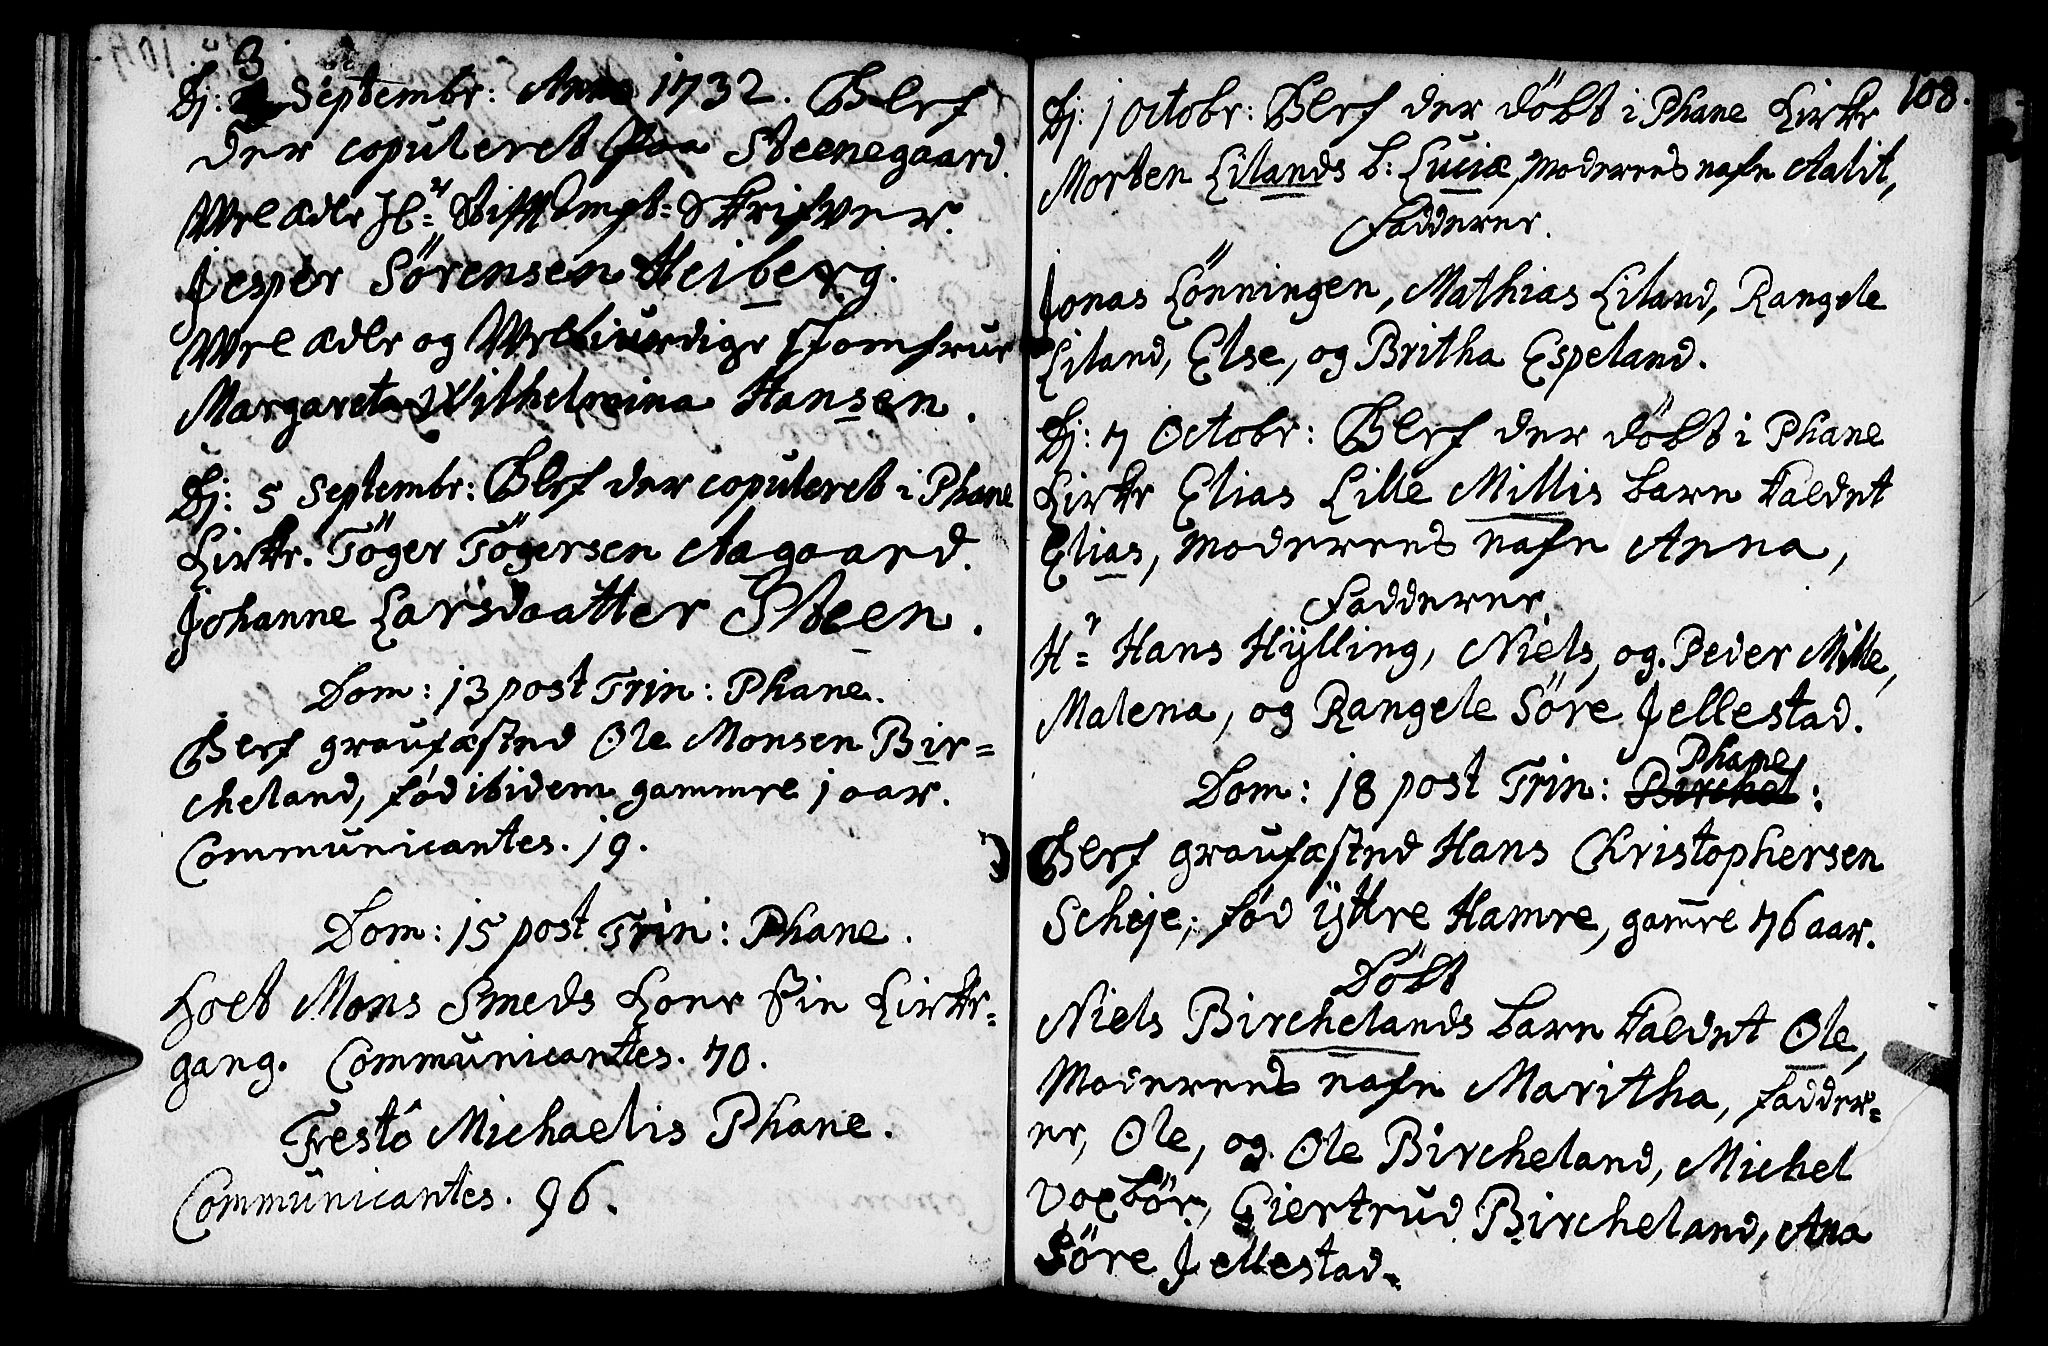 3
Dj: Septembr: Anno 1732. Blef
der copuleret paa Steenegaard.
Wel ædle Hr: Stifft Ampt-Skrifver.
Jesper Sörensen Heiberg.
Wel ædle og Welbiurdige Jomfrue
Margareta Wilhelmina Hansen.
Dj: 5 Septembr: Blef der copuleret i Phane
Kirke. Töger Tögersen Aagaard.
Johanne Larsdaatter Steen.
Dom: 13 post Trin: Phane.
Blef graufæsted Ole Monsen Bir=
cheland, fød ibidem gammle 1 aar.
Communicantes. 19.
Dom: 15 post Trin: Phane.
holt Mons Smeds Kone sin Kirke=
gang. Communicantes. 70.
Festô Michaelis Phane.
Communicantes. 96.
108.
Dj: 1 Octobr: Blef der döbt i Phane Kirke
Morten Lilands b: Luciæ, Moderens nafn Aalit,
Fadderer.
Jonas Lönningen, Mathias Liland, Rangele
Liland, Else, og Britha Espeland.
Dj: 7 Octobr: Blef der döbt i Phane
Kirke Elias Lille Millis barn kaldet
Elias, Moderens nafn Anna,
Fadderer.
Hr= Hans Hÿlling, Niels, og Peder Mille,
Malena, og Rangele Söre Jellestad.
Phane
Dom: 18 post Trin: Birchel:
Blef graufæsted Hans Christophersen
Scheje, fød ÿttre Hamre, gam̄le 76 aar.
Döbt
Niels Birchelands barn kaldet Ole,
Moderens nafn Maritha, fadder=
er, Ole, og Ole Bircheland, Michel
Voxbör, Giertrud Bircheland, Ana
Söre Jellestad.